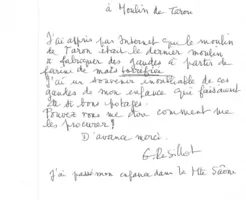 à Moulin de Taron
J'ai appris par Internet que le moulin
de Taron était le dernier moulin
à fabriquer des gaudes à partir de
farine de maïs torréfiée
J'ai un souvenir inoubliable de ces
gaudes de mon enfance qui faisaient
de si bons potages.
Pouvez vous me dire comment me
les procurer?
D'avance merci.
J'ai passé mon enfance dans la Hte Saône